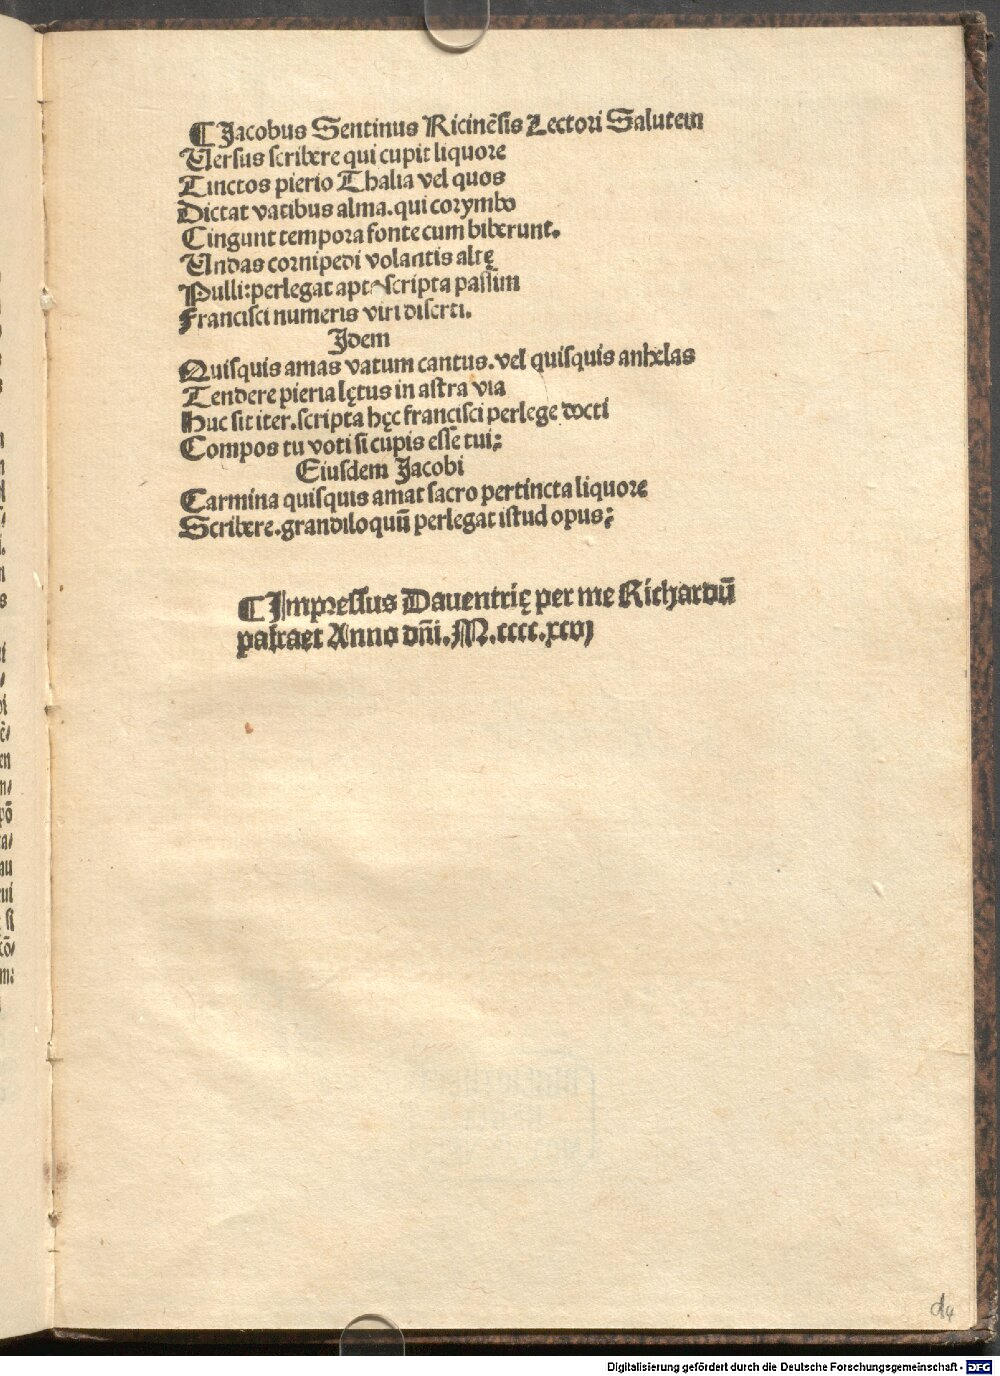 ¶ Jacobus Sentinus Ricinēsis Lectori Salutem
Versus scribere qui cupit liquore
Tinctos pierio Thalia vel quos
Dictat vatibus alma. qui corymbo
Cingunt tempora fonte cum biberunt.
Undas cornipedi volantis altę
Pulli: perlegat apte scripta passim
Francisci numeris viri diserti.
Idem
Quisquis amas vatum cantus. vel quisquis anhelas
Tendere pieria lętus in astra via
Huc sit iter. scripta hęc francisci perlege docti
Compos tu voti si cupis esse tui:
Eiusdem Jacobi
Carmina quisquis amat sacro pertincta liquore
Scribere. grandiloquū perlegat istud opus:
¶ Impressus Daventrię per me Richardū
pafraet Anno dñi. M.cccc.xcvj
d4
Digitalisierung gefördert durch die Deutsche Forschungsgemeinschaft - DFG